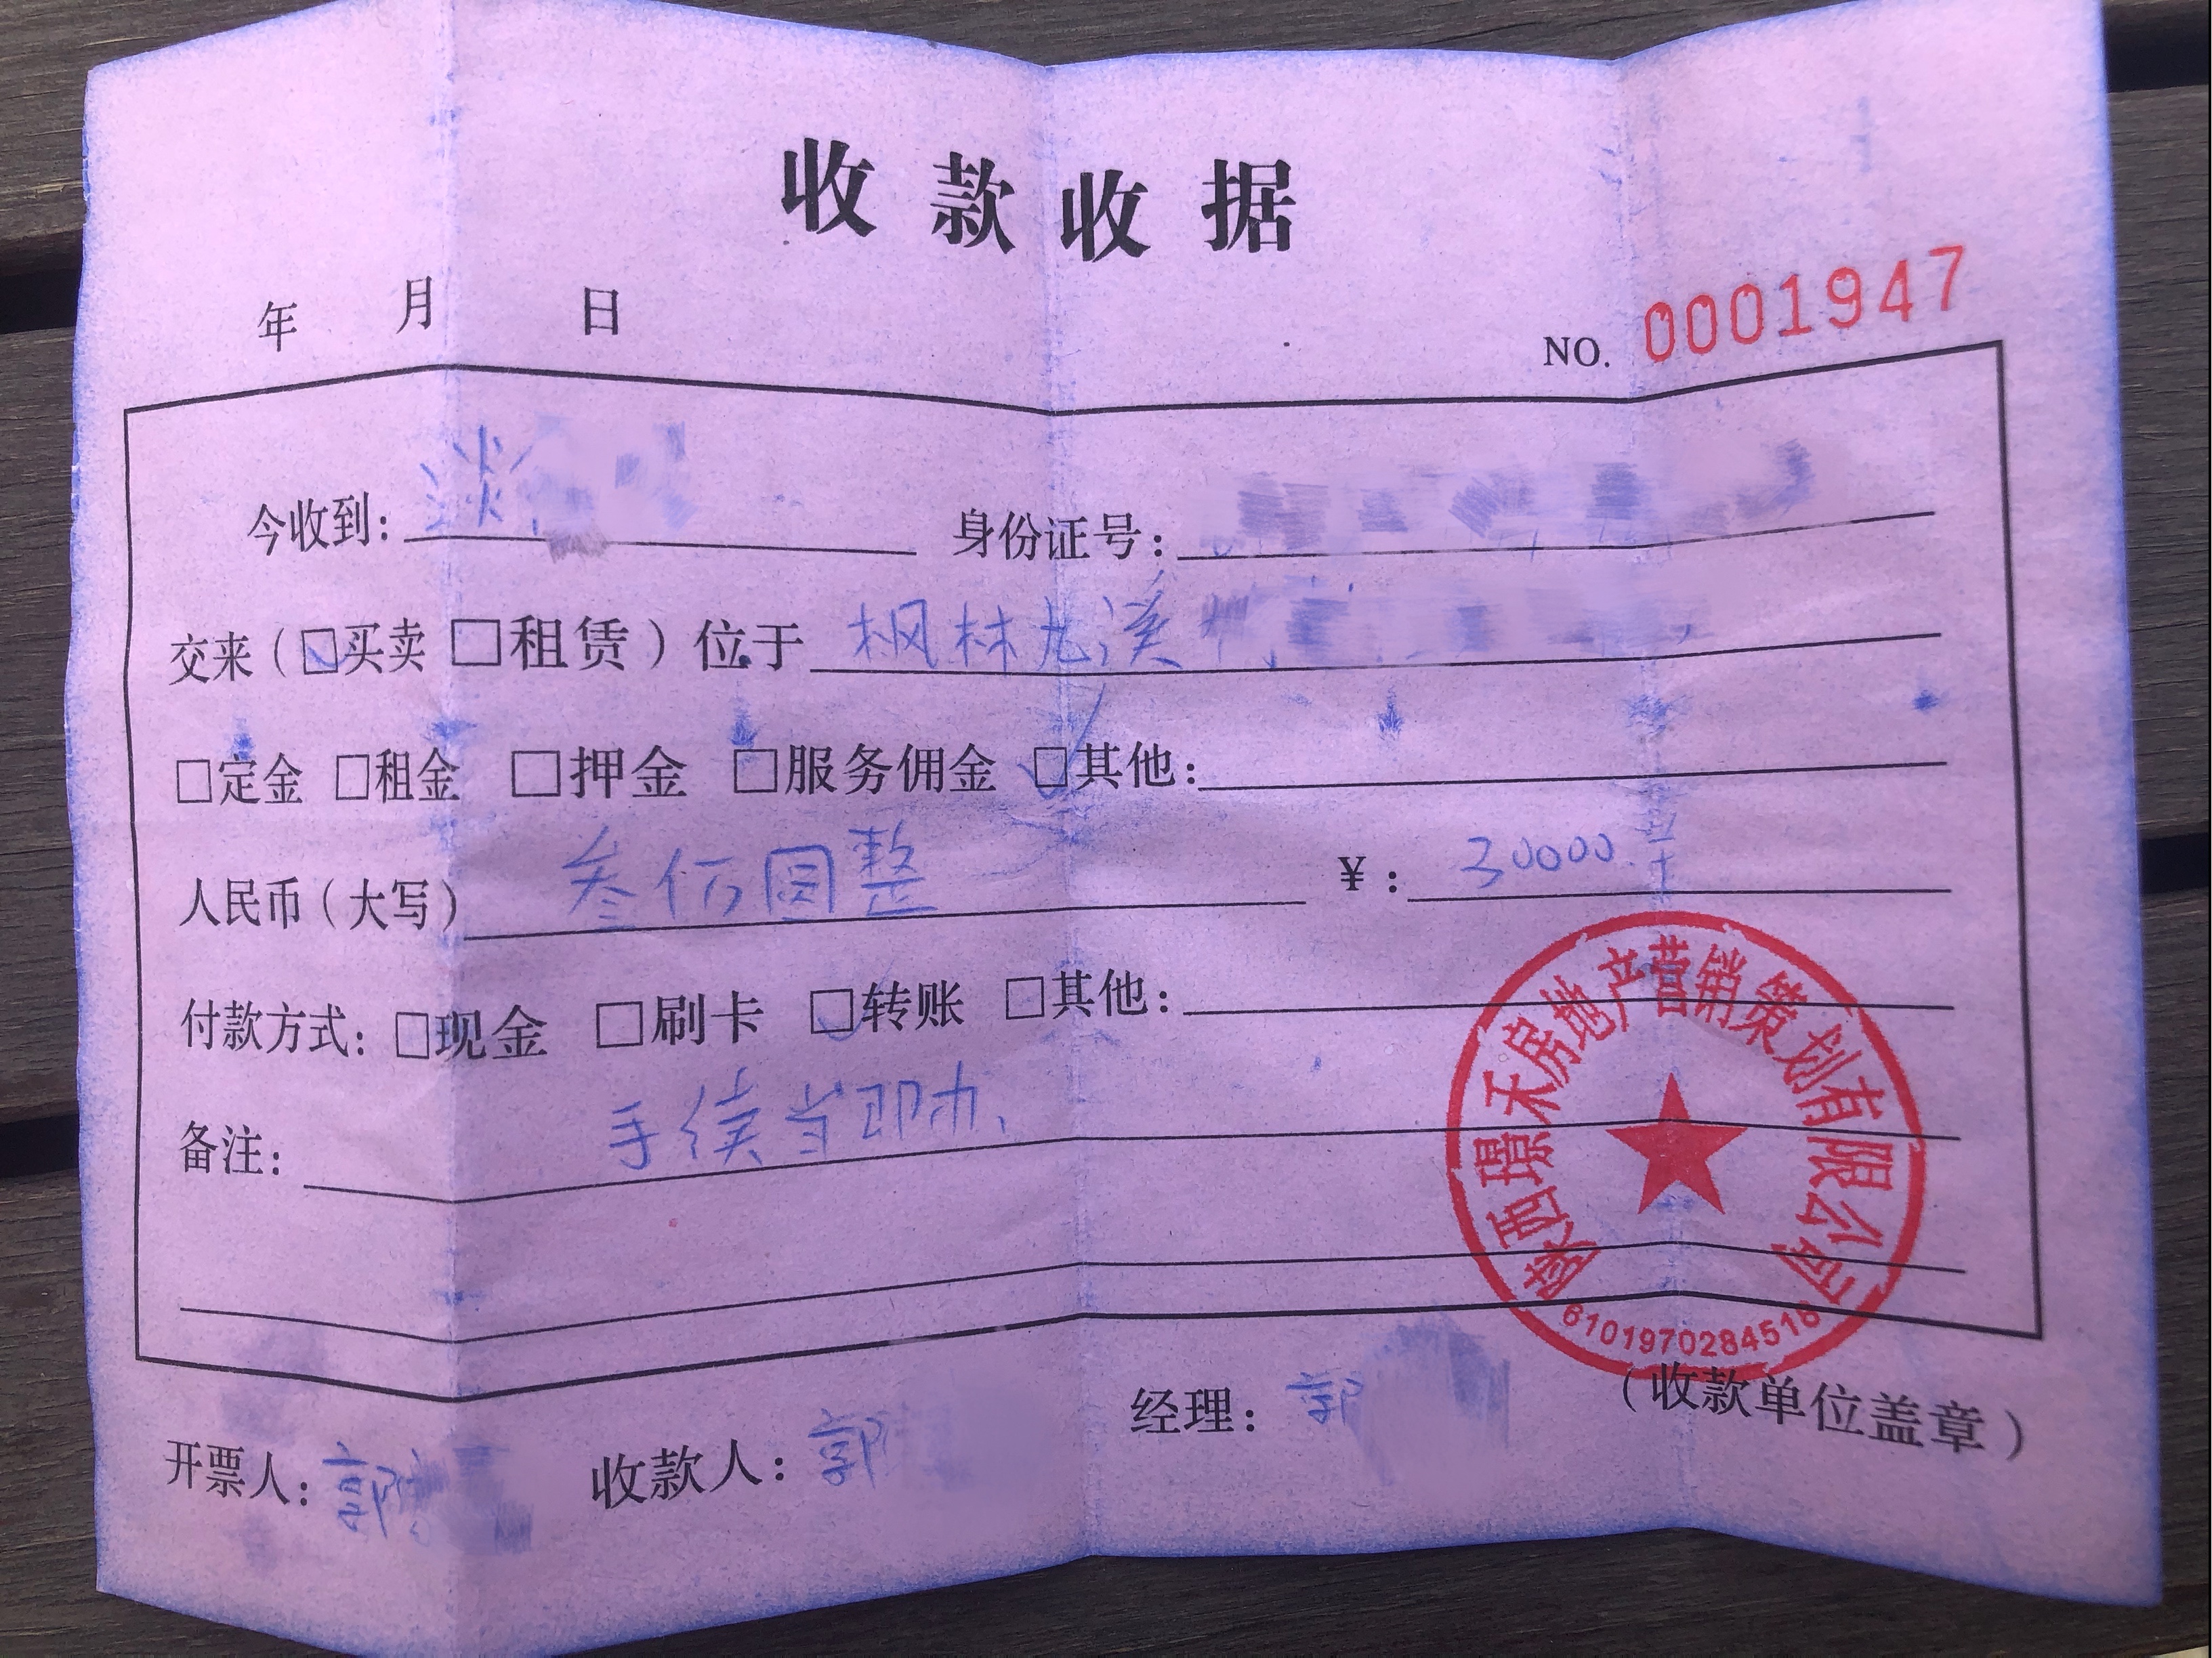 收款收据
年 月 日
NO. 0001947
今收到: 淡 身份证号:
交来（☑买卖 □租赁）位于 枫林九溪
□定金 □租金 □押金 □服务佣金 ☑其他:
人民币（大写） 叁仟圆整 ¥: 30000
付款方式: □现金 □刷卡 ☑转账 □其他:
备注: 手续当即办、
陕西璟禾房地产营销策划有限公司
6101970284518
开票人: 郭 收款人: 郭 经理: 郭 （收款单位盖章）